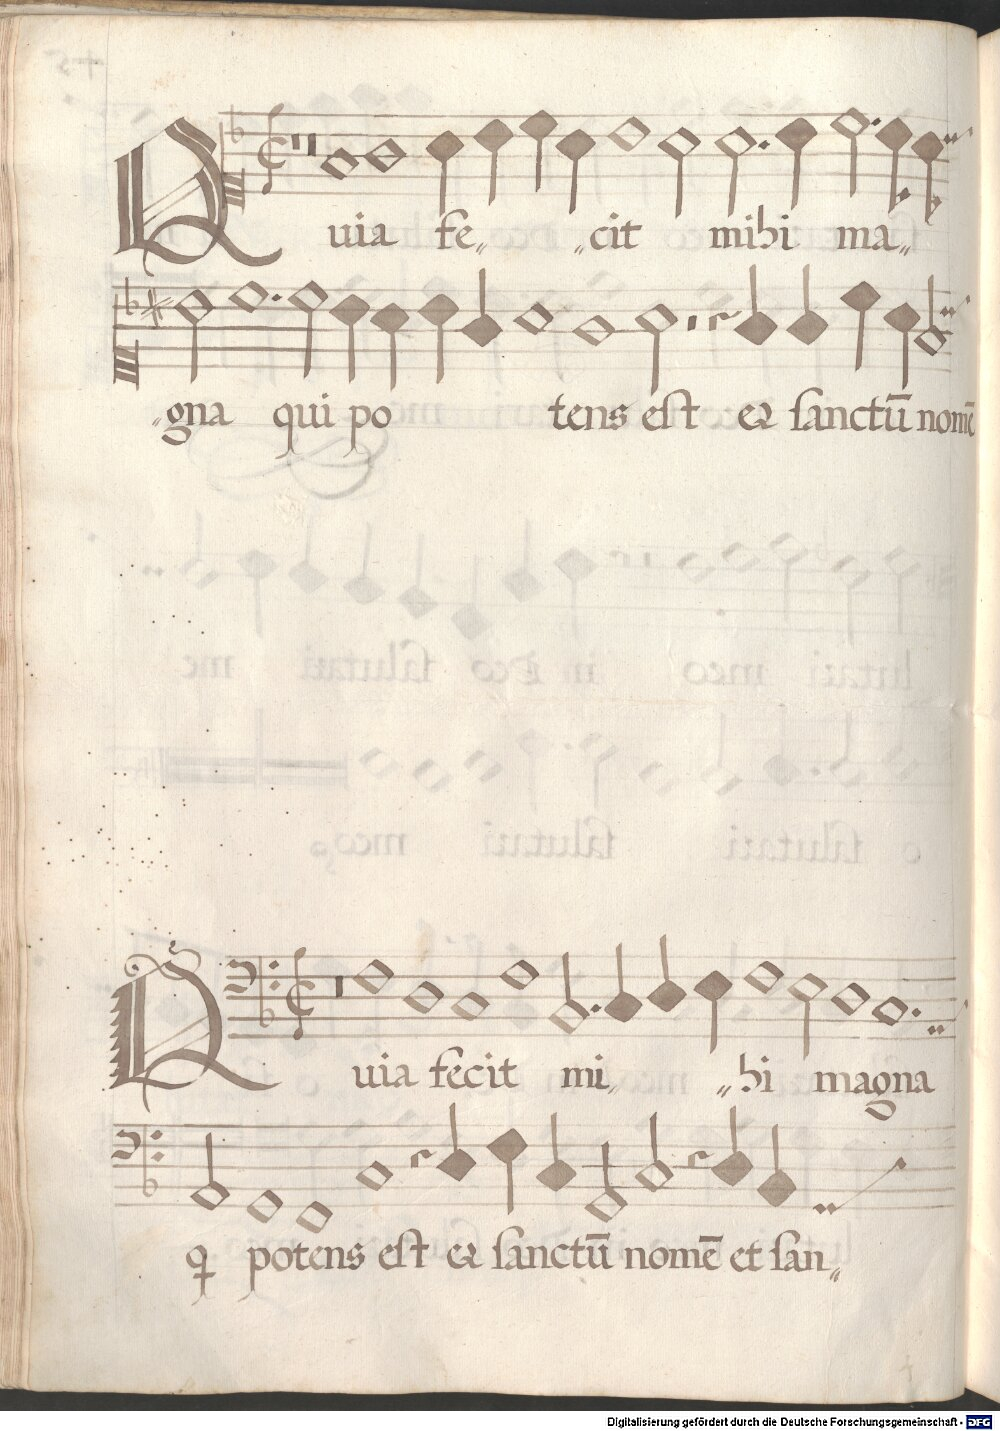 Quia fe„ „cit mihi ma„
„gna qui po tens est et sanctū nomē
Quia fecit mi„ „hi magna
q potens est et sanctū nomē et san„
Digitalisierung gefördert durch die Deutsche Forschungsgemeinschaft - DFG